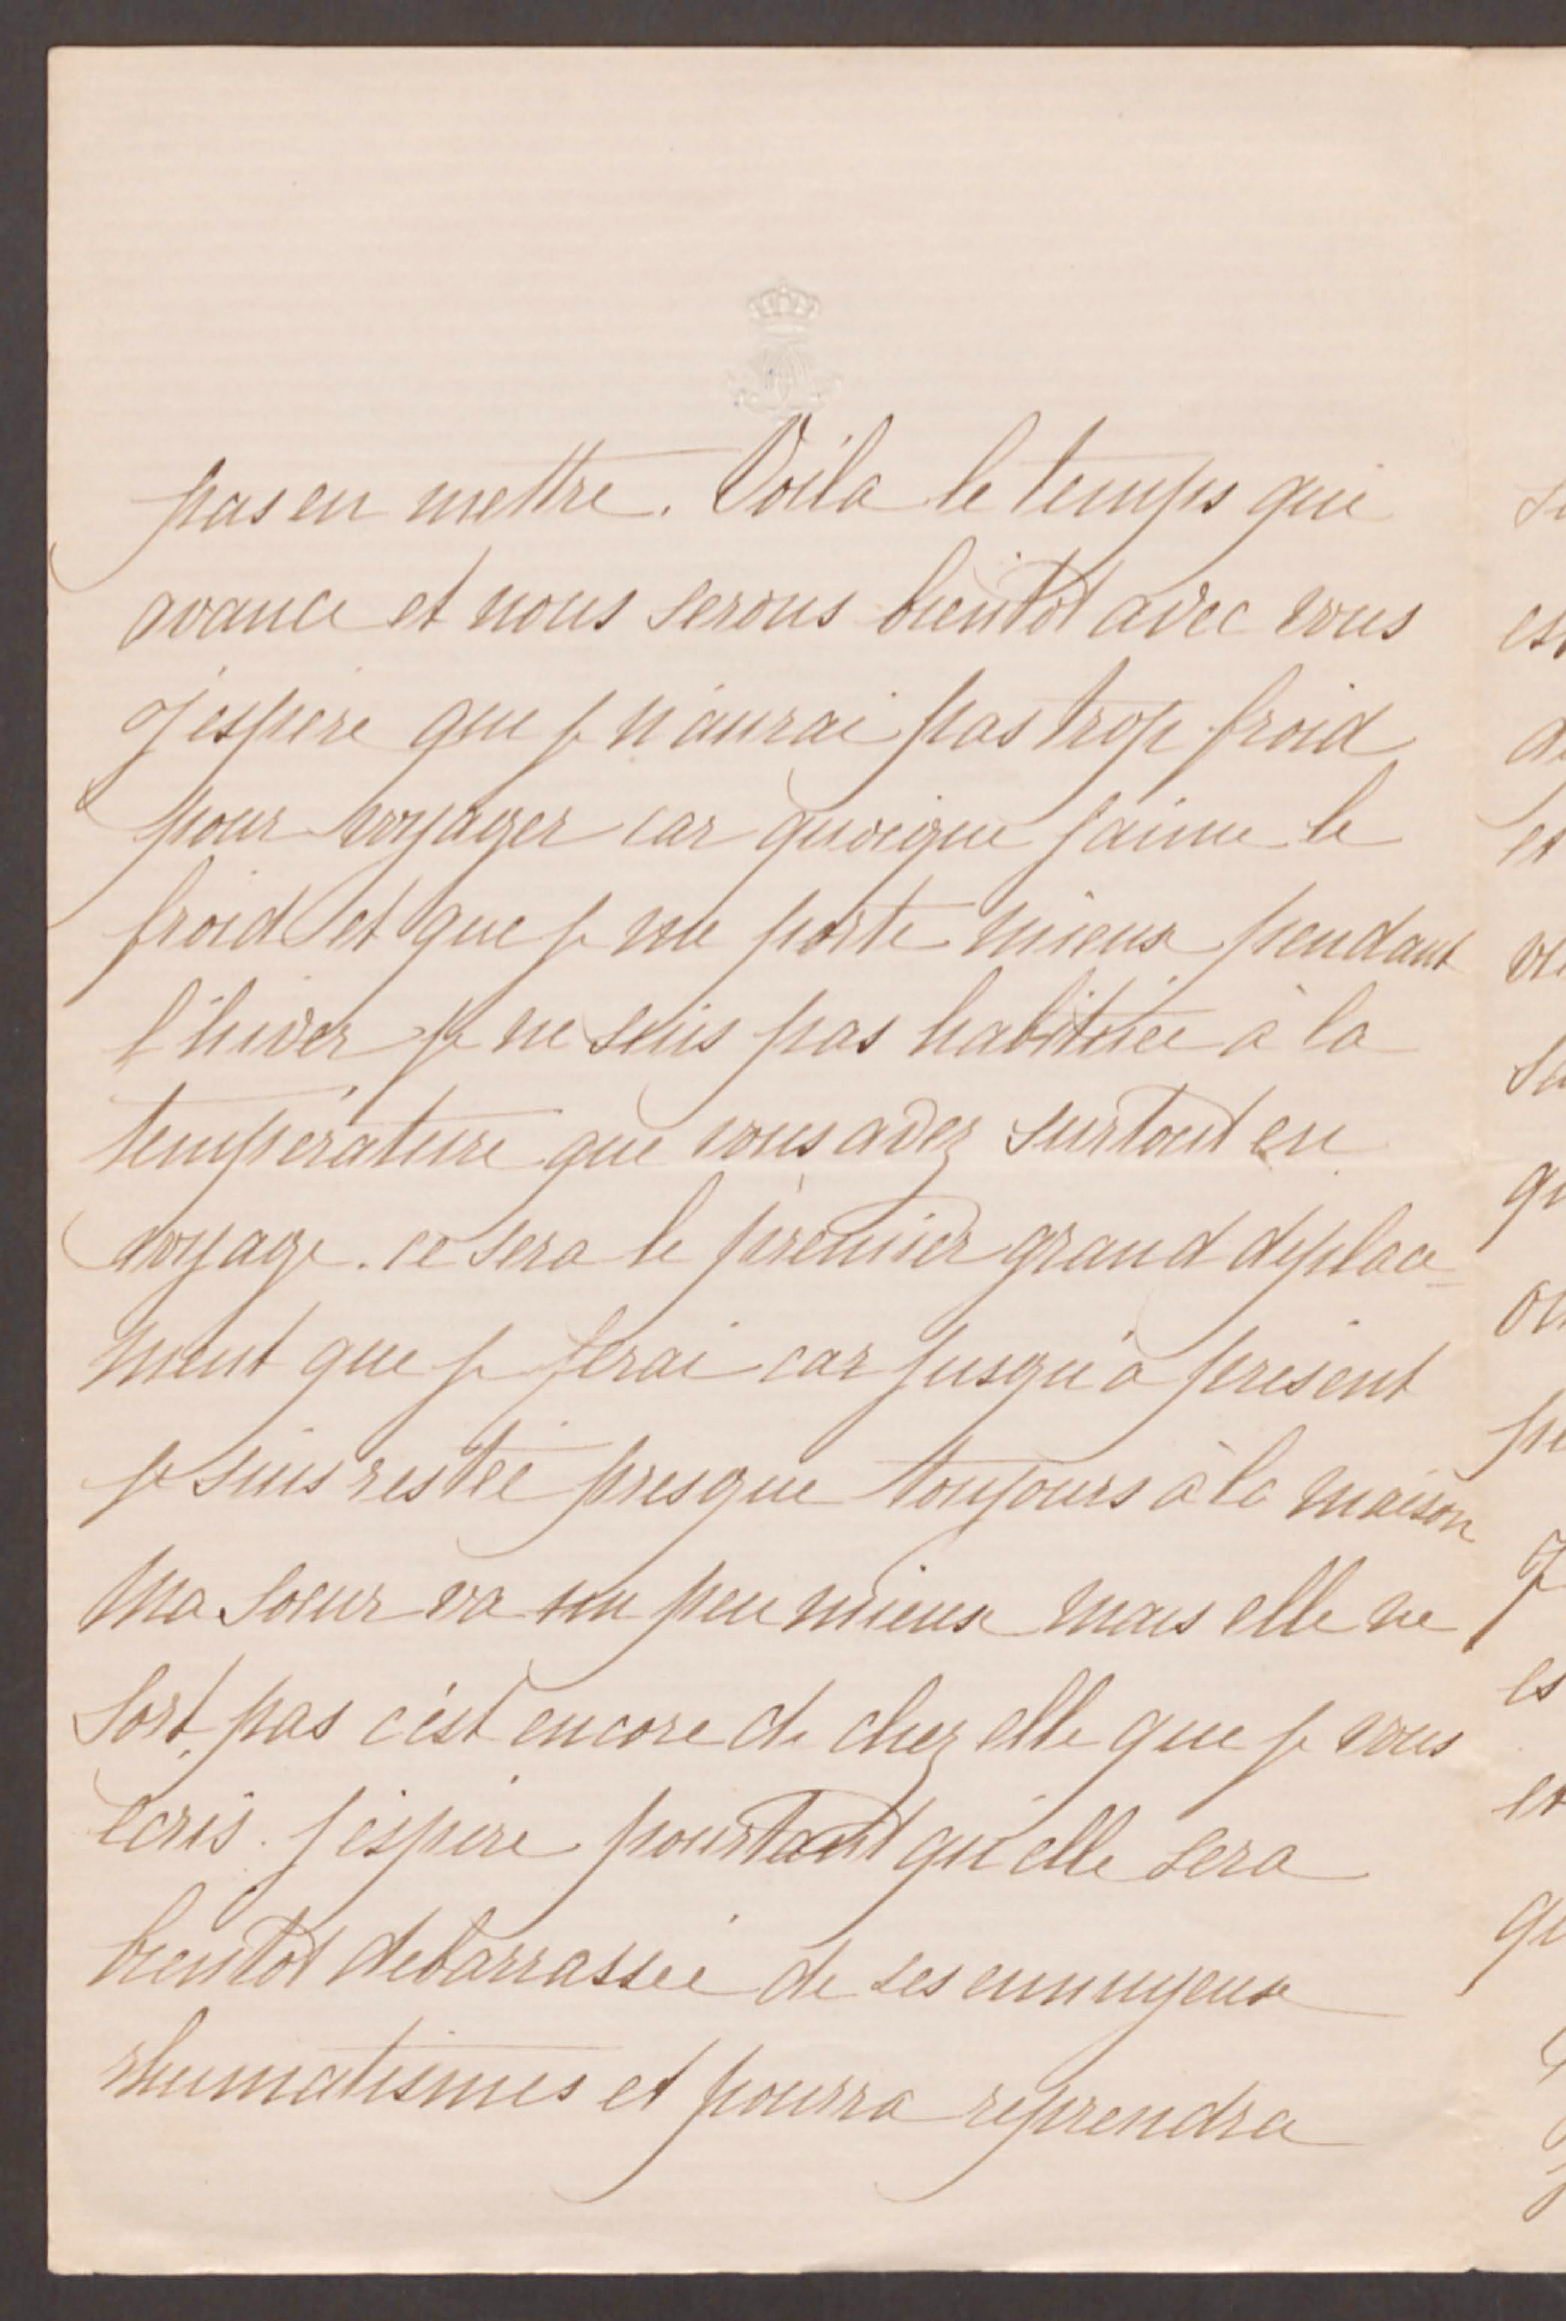 pas en mettre. Voila le temps qui
avance et nous serons bientôt avec vous
j'espère que je n'aurai pas trop froid
pour voyager car quoique j'aime le
froid et que je me porte mieux pendant
l'hiver je ne suis pas habituée à la
température que vous avez surtout en
voyage. ce sera le premier grand déplace-
ment que je ferai car jusqu'à présent
je suis restée presque toujours à la maison
Ma soeur va un peu mieux mais elle ne
sort pas c'est encore de chez elle que je vous
écris. j'espère pourtant qu'elle sera
bientôt debarrassée de ses ennuyeux
rhumatismes et pourra reprendra